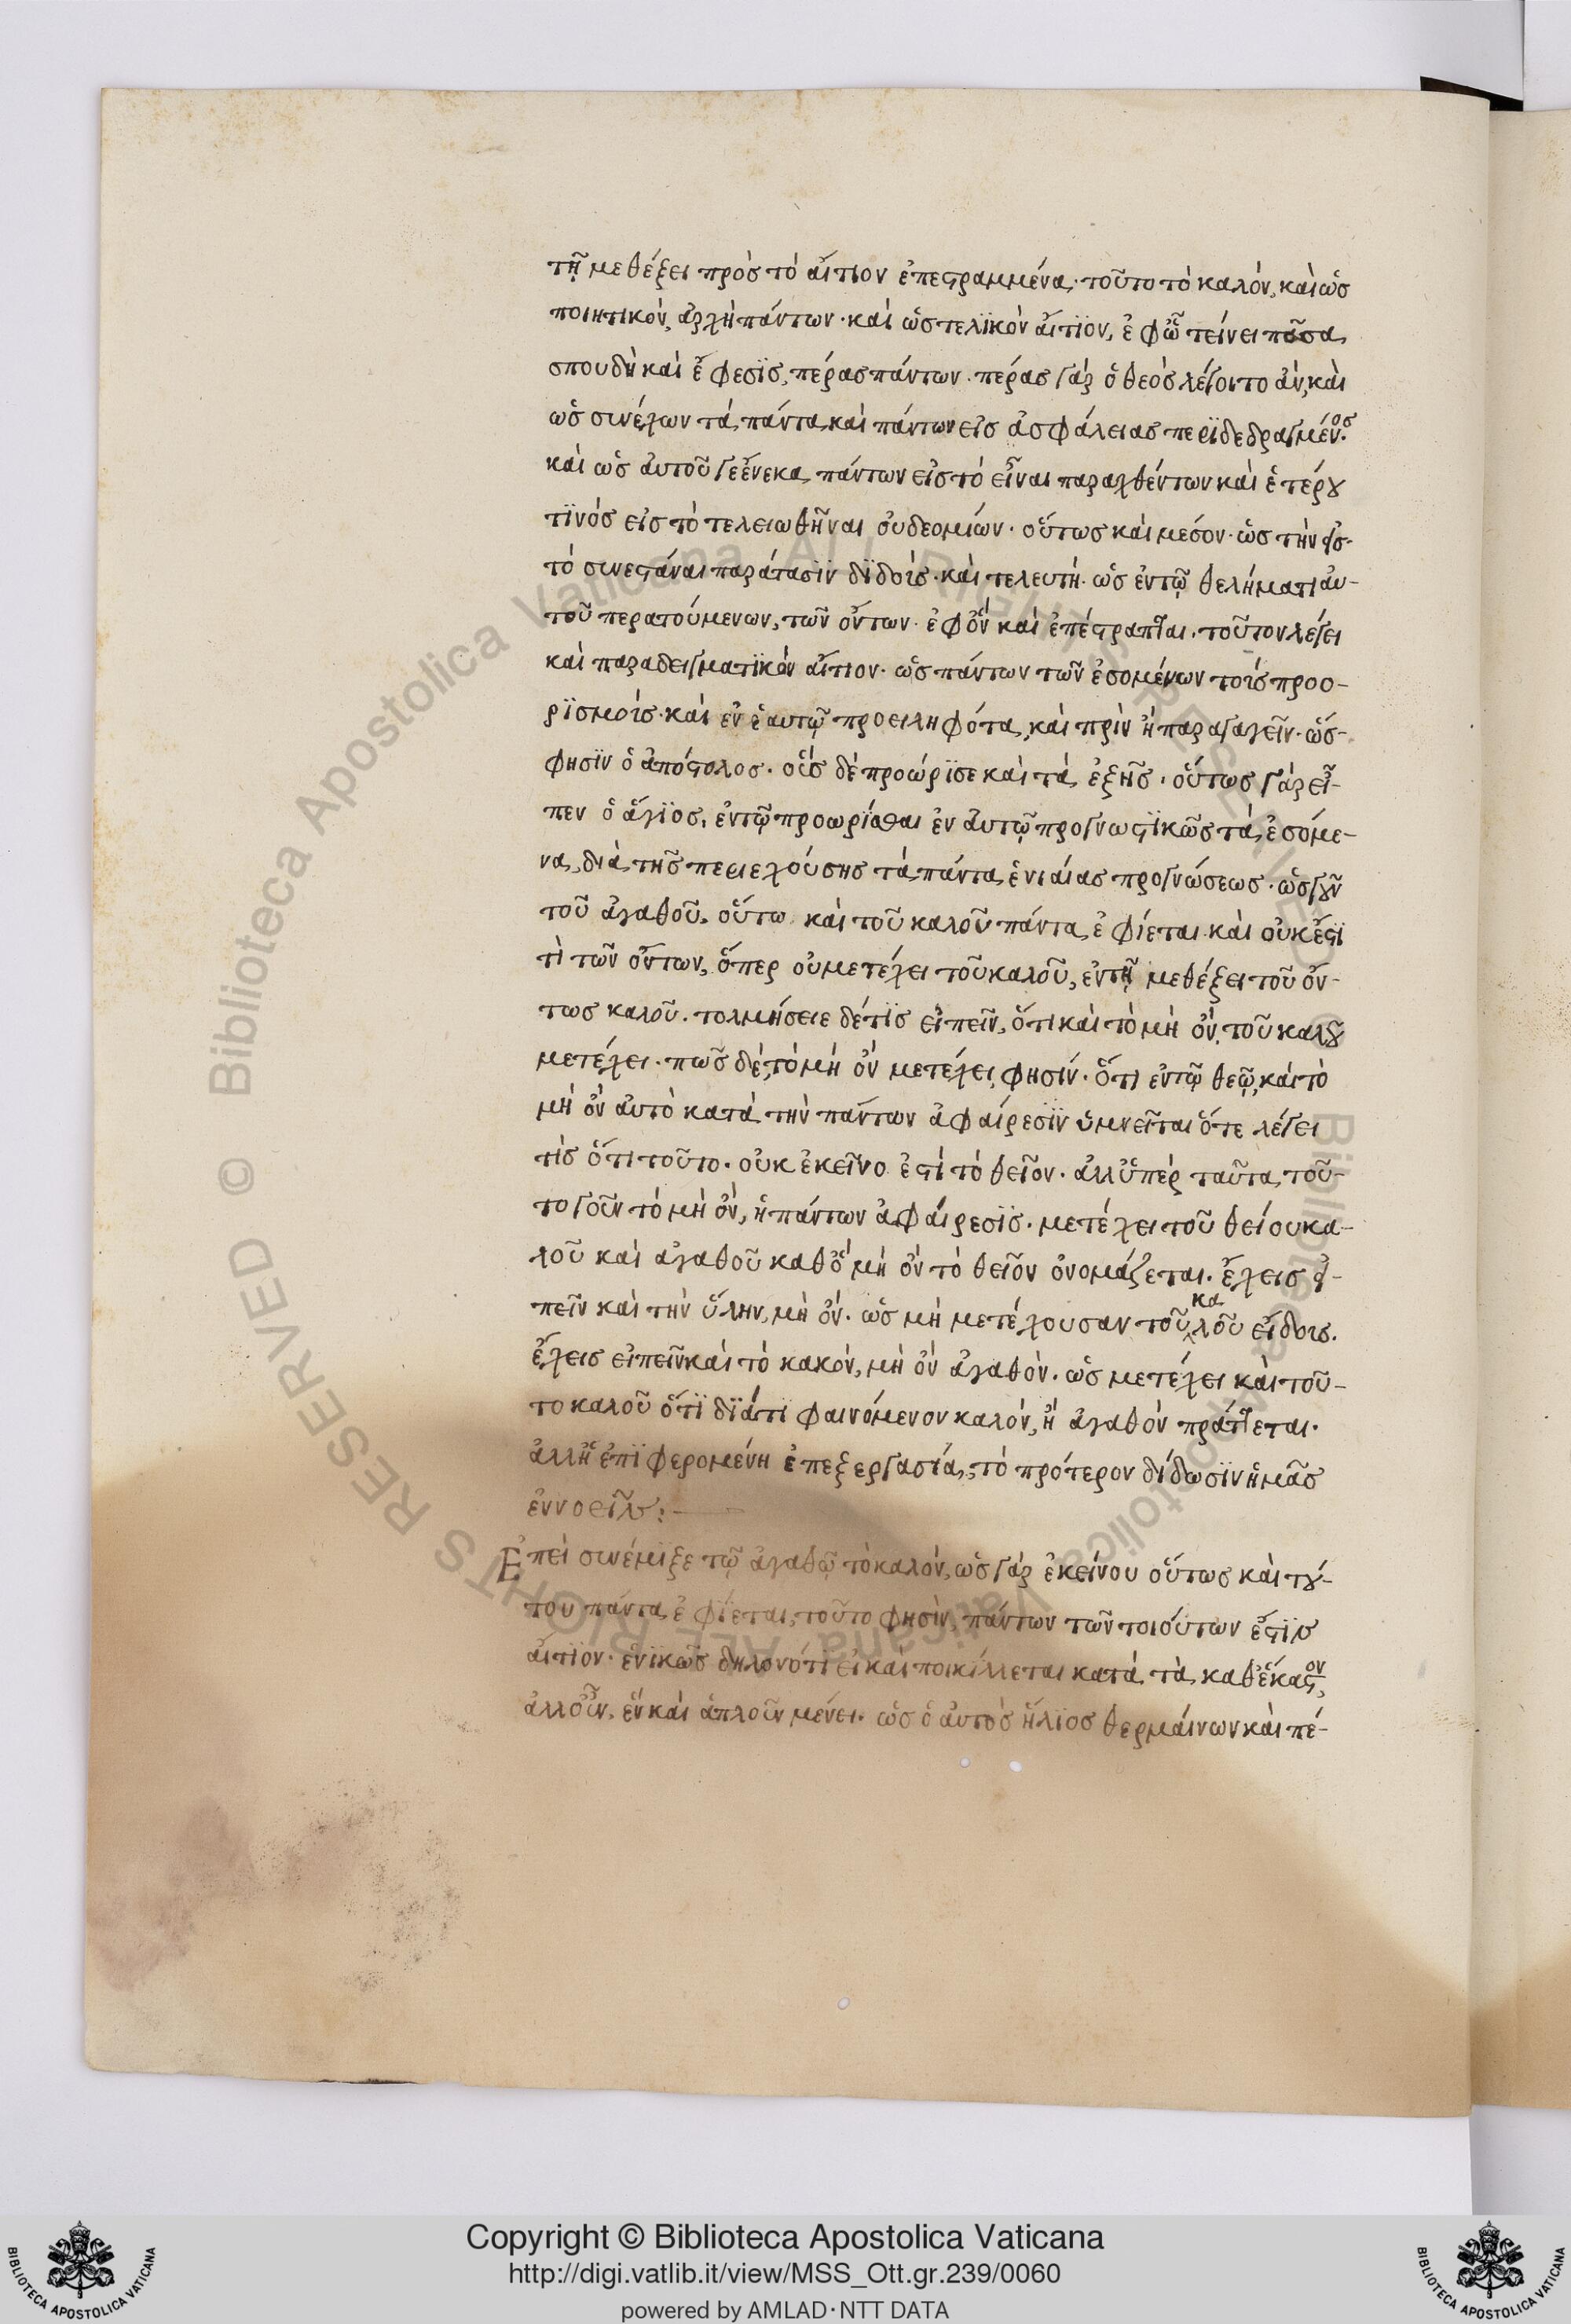 τῇ μεθέξει πρὸς τὸ αἴτιον ἐπεστραμμένα· τοῦτο τὸ καλόν, καὶ ὡς
ποιητικόν, ἀρχὴ πάντων· καὶ ὡς τελϊκὸν αἴτϊον, ἐφῶ τείνει πᾶσα
σπουδὴ καὶ ἔφεσϊς, πέρας πάντων· πέρας γὰρ ὁ θεὸς λέγοιτο ἂν, καὶ
ὡς συνέχων τὰ πάντα, καὶ πάντων εἰς ἀσφάλειας περϊδεδραγμένος·
καὶ ὡς αὐτοῦ γε ἕνεκα πάντων εἰς τὸ εἶναι παραχθέντων καὶ ἑτέρου
τϊνός εἰς τὸ τελειωθῆναι οὐ δεομένων· οὕτως καὶ μέσον· ὡς τὴν εἰσ
τὸ συνεστάναι παράτασϊν δϊδούς· καὶ τελευτή· ὡς ἐν τῷ θελήματι αὐ-
τοῦ περατούμενων, τῶν ὄντων· ἐφ ὃν καὶ ἐπέστραπται. τοῦτον λέγει
καὶ παραδειγματϊκὸν αἴτιον· ὡς πάντων τῶν ἐσομένων τοῖς προο-
ρϊσμοῖς· καὶ ἐν ἑαυτῷ προειληφότα, καὶ πρὶν ἢ παραγαγεῖν· ὥς
φησϊν ὁ ἀπόστολος· οὓς δὲ προώρϊσε καὶ τὰ ἑξῆς· οὕτως γὰρ εἶ-
πεν ὁ ἅγϊος, ἐν τῷ προωρίσθαι ἐν αὐτῷ προγνωστϊκῶς τὰ ἐσόμε-
να, διὰ τῆς περιεχούσης τὰ πάντα ἑνιαίας προγνώσεως· ὡς γοῦν
τοῦ ἀγαθοῦ, οὕτω καὶ τοῦ καλοῦ πάντα ἐφίεται. καὶ οὐκ ἔστϊ
τὶ τῶν ὄντων, ὅπερ οὐ μετέχει τοῦ καλοῦ, ἐν τῇ μεθέξει τοῦ ὄν-
τως καλοῦ. τολμήσειε δέ τϊς εἰπεῖν, ὅτι καὶ τὸ μὴ ὂν, τοῦ καλοῦ
μετέχει. πῶς δὲ, τὸ μὴ ὂν μετέχει, φησίν· ὅτι ἐν τῷ θεῷ, καὶ τὸ
μὴ ὂν αὐτὸ κατὰ τὴν πάντων ἀφαίρεσϊν ὑμνεῖται ὅτε λέγει
τὶς ὅτι τοῦτο· οὐκ ἐκεῖνο ἐστὶ τὸ θεῖον· ἀλλ ὑπὲρ ταῦτα, τοῦ-
το γοῦν τὸ μὴ ὂν, ἡ πάντων ἀφαίρεσϊς. μετέχει τοῦ θείου κα-
λοῦ καὶ ἀγαθοῦ καθ ὃ μὴ ὂν τὸ θεῖον ὀνομάζεται. ἔχεις εἰ-
πεῖν καὶ τὴν ὕλην, μὴ ὄν· ὡς μὴ μετέχουσαν τοῦ καλοῦ εἴδους.
ἔχεις εἰπεῖν καὶ τὸ κακόν, μὴ ὂν ἀγαθόν· ὡς μετέχει καὶ τοῦ-
το καλοῦ ὅτϊ δϊά τι φαινόμενον καλόν, ἢ ἀγαθὸν πράττεται·
ἀλλ ἡ ἐπϊφερομένη ἐπεξεργασία, τὸ πρότερον δίδωσϊν ἡμᾶς
ἐννοεῖν:-
Ἐπεὶ συνέμϊξε τῷ ἀγαθῷ τὸ καλόν, ὡς γὰρ ἐκείνου οὕτως καὶ τού-
του πάντα ἐφίεται, τοῦτο φησὶν, πάντων τῶν τοιούτων ἔστϊν
αἴτϊον· ἑνϊκῶς δηλονότϊ εἰ καὶ ποικίλλεται κατὰ τὰ καθ ἕκαστον,
ἀλλ οὖν, ἓν καὶ ἁπλοῦν μένει· ὡς ὁ αὐτὸς ἥλϊος θερμαίνων καὶ πέ-
Copyright © Biblioteca Apostolica Vaticana
http://digi.vatlib.it/view/MSS_Ott.gr.239/0060
powered by AMLAD·NTT DATA